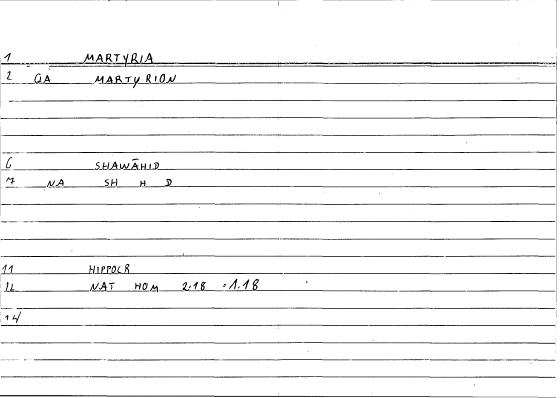 1 MARTYRIA
2 GA MARTYRION
6 SHAWĀHID
7 NA SH H D
11 HIPPOCR
12 NAT HOM 2.18 = 1.18
14